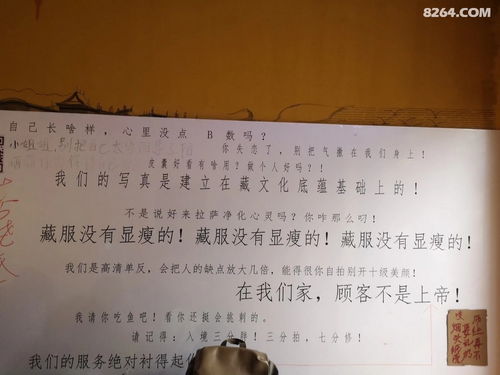 8264.COM
自己长啥样，心里没点 B 数吗？
小姐姐，别把自己
你失恋了，别把气撒在我们身上！
皮囊好看有啥用？做个人好吗？！
我们的写真是建立在藏文化底蕴基础上的！
不是说好来拉萨净化心灵吗？你咋那么叼！
藏服没有显瘦的！藏服没有显瘦的！藏服没有显瘦的！
我们是高清单反，会把人的缺点放大几倍，能得很你自拍别开十级美颜！
在我们家，顾客不是上帝！
我请你吃鱼吧！看你还挺会挑刺的。
请记得：入境三分胖！三分拍，七分修！
我们的服务绝对衬得起你